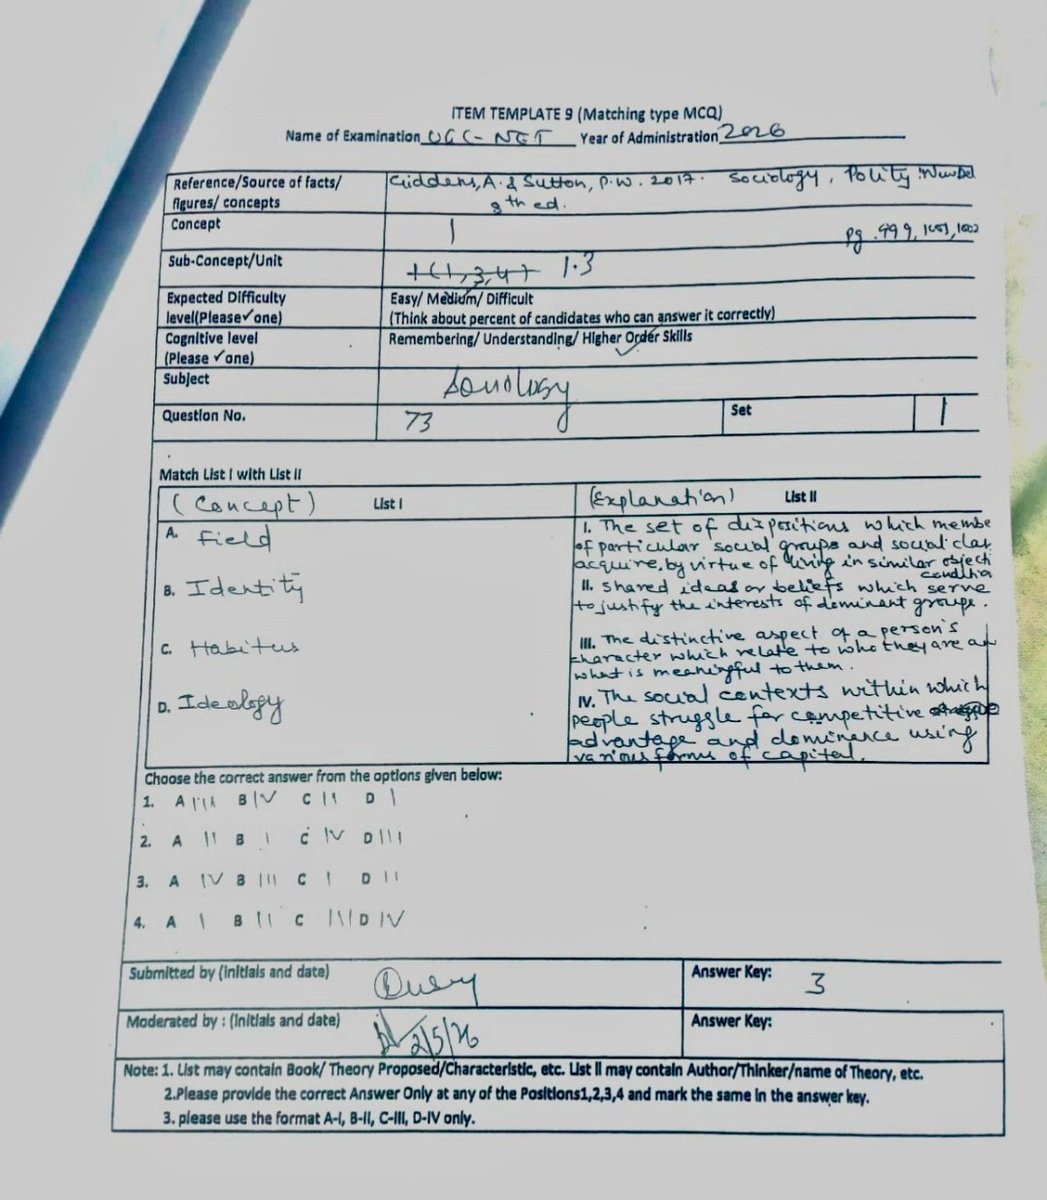 ITEM TEMPLATE 9 (Matching type MCQ)
Name of Examination UGC-NET Year of Administration 2026
Reference/Source of facts/ figures/ concepts Giddens, A. & Sutton, P.W. 2017. Sociology, Polity: New Del
8th ed.
Concept 1 pg. 999, 1001, 1002
Sub-Concept/Unit 1.3
Expected Difficulty level(Please✓one) Easy/ Medium/ Difficult
(Think about percent of candidates who can answer it correctly)
Cognitive level (Please ✓one) Remembering/ Understanding/ Higher Order Skills
Subject Sociology
Question No. 73 Set 1
Match List I with List II
(Concept) List I (Explanation) List II
A. Field
B. Identity
C. Habitus
D. Ideology
I. The set of dispositions which membe
of particular social groups and social clas
acquire, by virtue of living in similar objecti
conditio
II. Shared ideas or beliefs which serve
to justify the interests of dominant groups.
III. The distinctive aspect of a person's
character which relate to who they are an
what is meaningful to them.
IV. The social contexts within which
people struggle for competitive
advantage and dominance using
various forms of capital.
Choose the correct answer from the options given below:
1. A III B IV C II D I
2. A II B I C IV D III
3. A IV B III C I D II
4. A I B II C III D IV
Submitted by (Initials and date) Answer Key: 3
Moderated by : (Initials and date) 2/5/26 Answer Key:
Note: 1. List may contain Book/ Theory Proposed/Characteristic, etc. List II may contain Author/Thinker/name of Theory, etc.
2.Please provide the correct Answer Only at any of the Positions1,2,3,4 and mark the same in the answer key.
3. please use the format A-I, B-II, C-III, D-IV only.